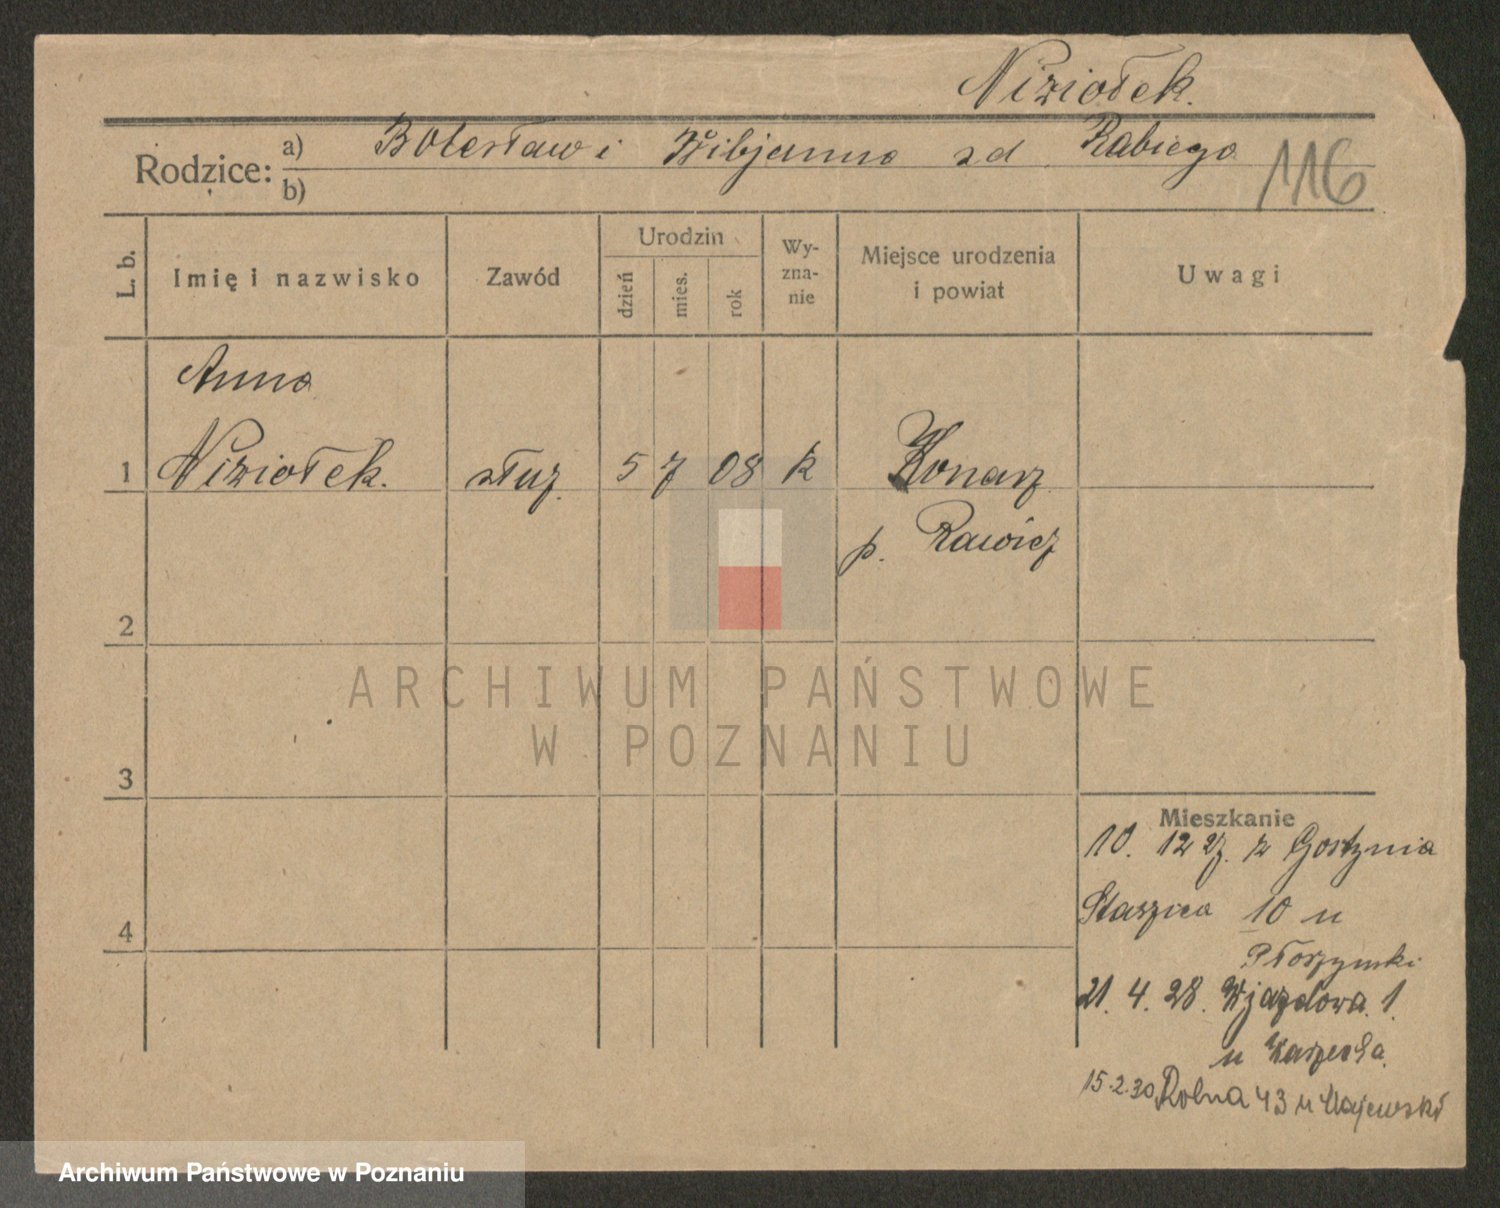 Niziołek.
Rodzice: a) Bolesław i Wibjanna zd Rabiega
b)
116
L. b.
Imię i nazwisko
Zawód
Urodzin
dzień
mies.
rok
Wy-
zna-
nie
Miejsce urodzenia
i powiat
Uwagi
Anna
1 Niziołek. służ. 5 7 08 k Konarz
p. Rawicz
2
ARCHIWUM PAŃSTWOWE
W POZNANIU
3
Mieszkanie
10. 12 27. z Gostynia
Staszica 10 u
4
21. 4. 28. Wjazdowa 1.
u
15.2.30 Rolna 43 u Majewski
Archiwum Państwowe w Poznaniu